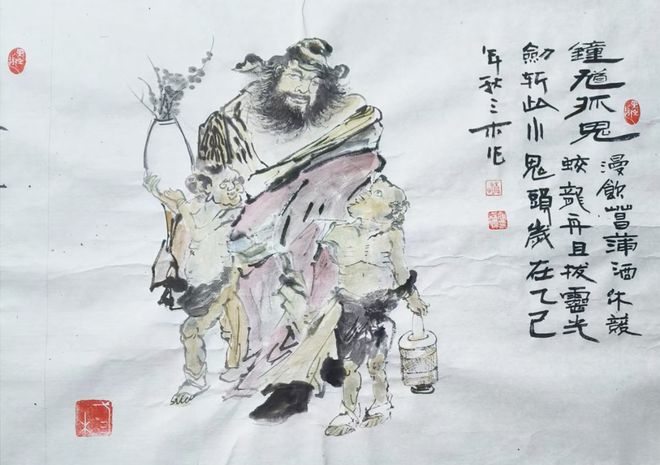 鐘馗抓鬼
漫飲菖蒲酒休競
蛟龍舟且拔靈光
劍斬此小鬼頭歲在乙巳
年秋三木作